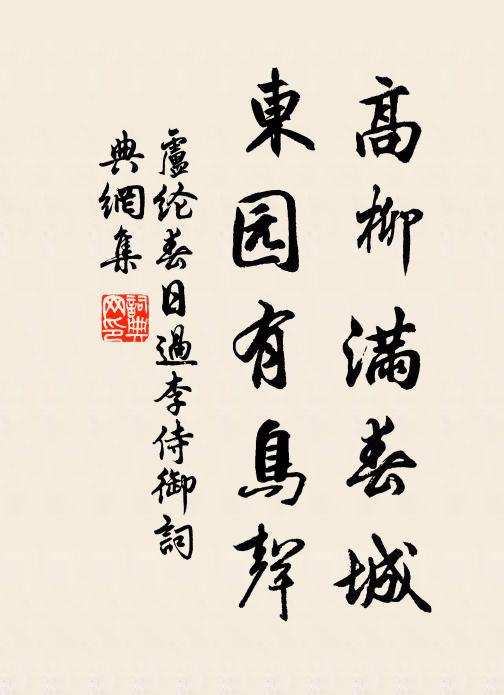 高柳滿春城
東园有鳥聲
盧纶春日過李侍御詞
典網集
詞典网印